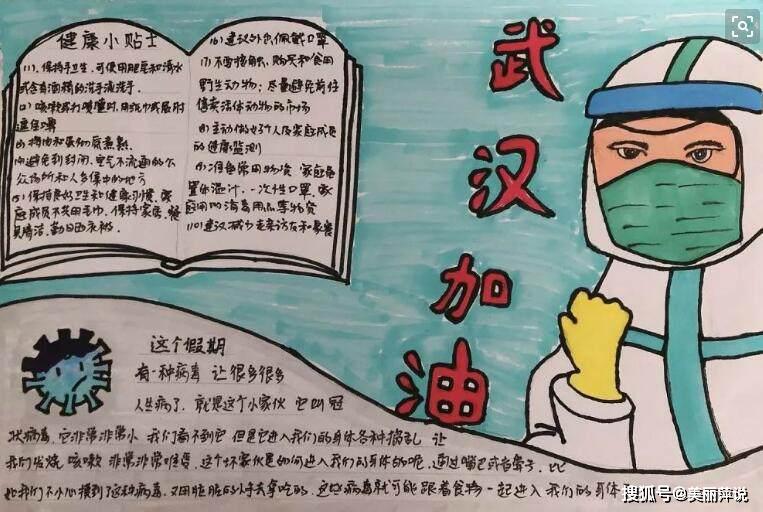 健康小贴士
(1)、保持手卫生，可使用肥皂和清水
或含有酒精的洗手液洗手。
(2) 咳嗽或打喷嚏时，用纸巾或屈肘
遮住口鼻
(3) 将肉和蛋彻底煮熟。
(4) 避免到封闭、空气不流通的公
众场所和人多集中的地方
(5) 保持良好卫生和健康习惯，家
庭成员不共用毛巾，保持家居、餐
具清洁，勤晒衣被。
(6) 建议外出佩戴口罩
(7) 不要接触、购买和食用
野生动物；尽量避免前往
售卖活体动物的市场
(8) 主动做好个人及家庭成员
的健康监测
(9) 准备常用物资 家庭备
置体温计，一次性口罩，家
庭用的消毒用品等物资
(10) 建议减少走亲访友和聚餐
武汉加油
这个假期
有一种病毒 让很多很多
人生病了，就是这个小家伙 它叫冠
状病毒，它非常非常小 我们看不到它 但是它进入我们的身体各种捣乱 让
我们发烧 咳嗽 非常非常难受，这个坏家伙是如何进入我们的身体的呢，通过嘴巴或者鼻子，比
如我们不小心摸到了这种病毒，又用脏脏的小手去拿吃的，这些病毒就可能跟着食物一起进入我们的身体
搜狐号@美丽萍说